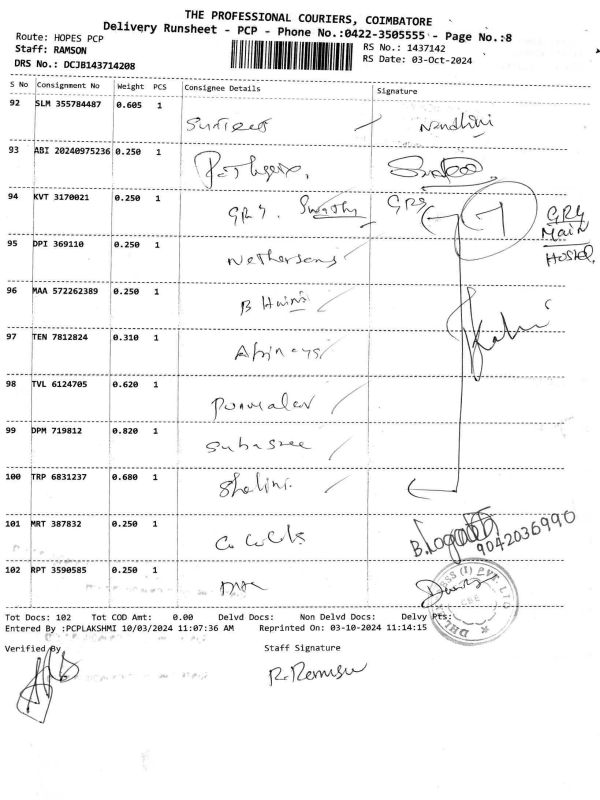 THE PROFESSIONAL COURIERS, COIMBATORE
Delivery Runsheet - PCP - Phone No.:0422-3505555 - Page No.:8
Route: HOPES PCP
RS No.: 1437142
Staff: RAMSON
RS Date: 03-Oct-2024
DRS No.: DCJB143714208
S No Consignment No Weight PCS Consignee Details Signature
92 SLM 355784487 0.605 1 Nandhini
93 ABI 20240975236 0.250 1
94 KVT 3170021 0.250 1 GRG. Swathy GRG
GRG
Main
Hostel
95 DPI 369110 0.250 1
96 MAA 572262389 0.250 1 B Harini
97 TEN 7812824 0.310 1 Abinaya
98 TVL 6124705 0.620 1 Punmalar
99 DPM 719812 0.820 1 Subasree
100 TRP 6831237 0.680 1 Shalini
101 MRT 387832 0.250 1
9042036990
102 RPT 3590585 0.250 1
Tot Docs: 102 Tot COD Amt: 0.00 Delvd Docs: Non Delvd Docs: Delvy Pts:
Entered By :PCPLAKSHMI 10/03/2024 11:07:36 AM Reprinted On: 03-10-2024 11:14:15
Verified By Staff Signature